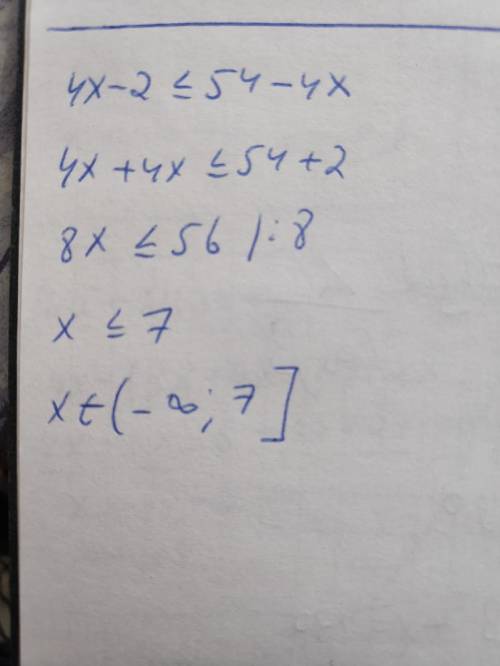 4x-2 ≤ 54-4x
4x+4x ≤ 54+2
8x ≤ 56 /:8
x ≤ 7
x∈(-∞; 7]